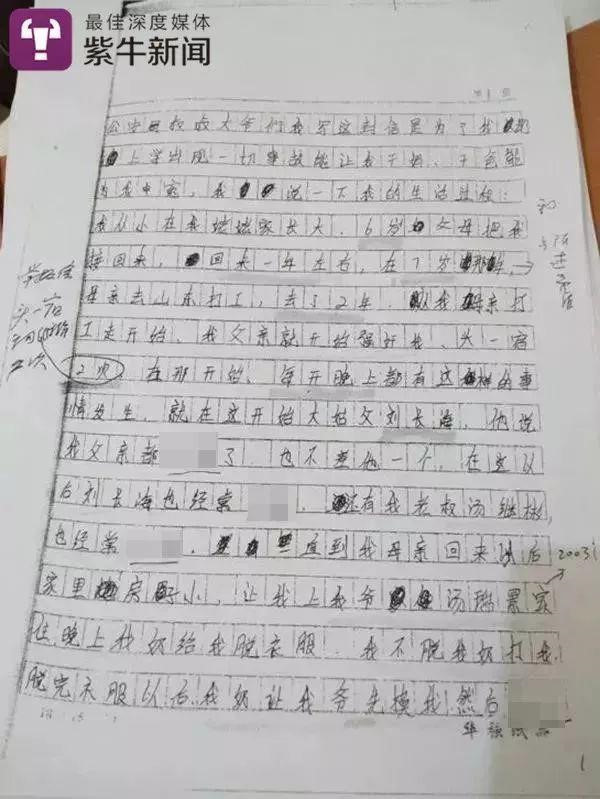 最佳深度媒体
紫牛新闻
第1页
公安局叔叔大爷们我写这封信是为了我
上学出现一切事故能让我干妈、干爸能
为我申冤，我说一下我的生活过程：
我从小在我姥姥家长大，6岁父母把我
接回来，回来一年左右，在7岁那年，
母亲去山东打工，去了2年，从我母亲打
工走开始，我父亲就开始强奸我、头一宿
2次，在那开始，每天晚上都有这样的事
情发生，就在这开始大姑父刘长海，他说
我父亲都 了，也不差他一个，在这以
后刘长海也经常 ，还有我老叔汤继彬，
也经常 ，一直到我母亲回来以后
家里房子小，让我上我爷汤瑞景家
住，晚上我奶给我脱衣服，我不脱我奶打我，
脱完衣服以后我奶让我爷先摸我然后
头一宿
2003
1